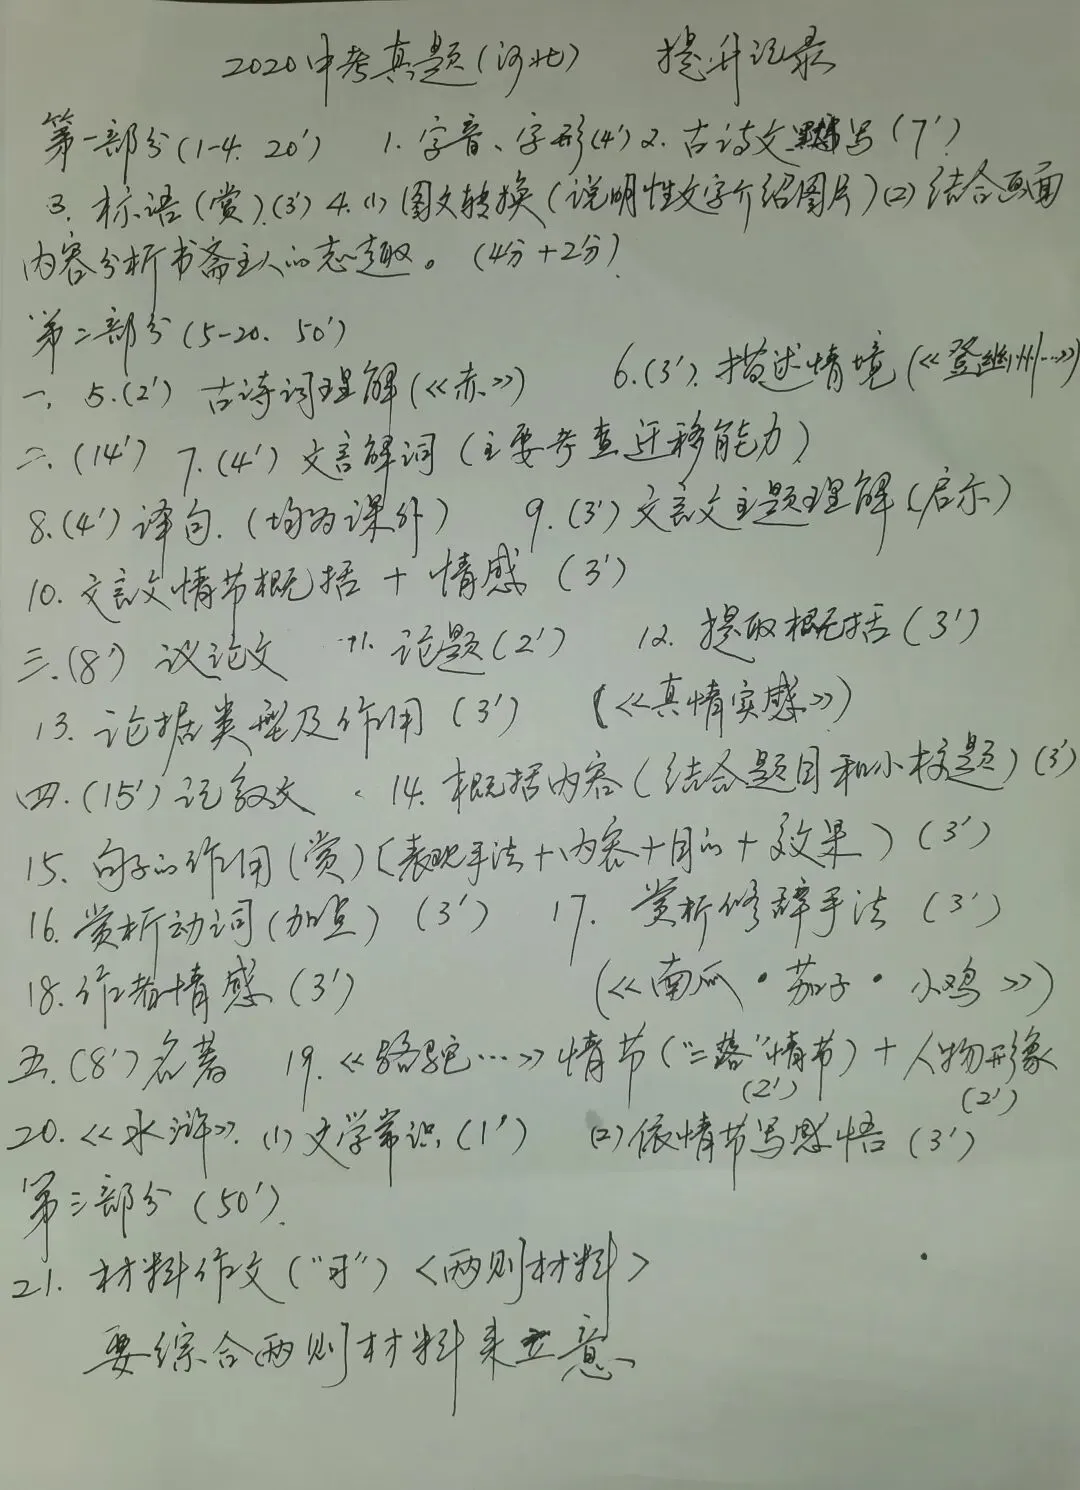 2020中考真题(河北) 提升记录
第一部分(1-4. 20′) 1.字音、字形(4′) 2.古诗文默写(7′)
3.标语(赏)(3′) 4.(1)图文转换(说明性文字介绍图片)(2)结合画面
内容分析书斋主人的志趣。(4分+2分)
第二部分(5-20. 50′)
一、5.(2′) 古诗词理解(《赤..》) 6.(3′).描述情境(《登幽州…》)
二、(14′) 7.(4′) 文言解词(主要考查迁移能力)
8.(4′)译句.(均为课外) 9.(3′)文言文主题理解(启示)
10.文言文情节概括+情感(3′)
三.(8′) 议论文 11.论题(2′) 12.提取概括(3′)
13.论据类型及作用(3′) (《真情实感》)
四.(15′)记叙文 14.概括内容(结合题目和小标题)(3′)
15.句子的作用(赏)(表现手法+内容+目的+效果)(3′)
16.赏析动词(加点)(3′) 17.赏析修辞手法(3′)
18.作者情感(3′) (《南瓜·茄子·小鸡》)
五.(8′)名著 19.《骆驼…》情节("二落"情节)+人物形象
(2′) (2′)
20.《水浒》.(1)文学常识(1′) (2)依情节写感悟(3′)
第三部分(50′).
21.材料作文("")<两则材料>
要综合两则材料来立意